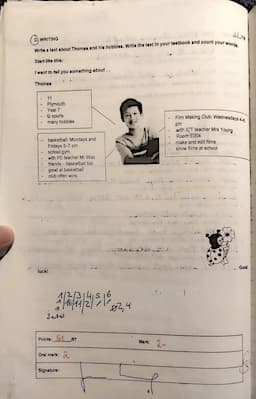 WRITING
Write a text about Thomas and his hobbies. Write the text in your textbook and count your words.
Start like this:
I want to tell you something about ...
Thomas
- 11
- Plymouth
- Year 7
- sports
- many hobbies
- basketball: Mondays and
Fridays 5-7 pm
- school gym
- with PE teacher Mr
friends - basketball too
- good at basketball
- club often wins
- Film Making Club: Wednesdays 4-6
pm
- with ICT teacher Mrs Young
- Room
- make and edit films
- show films at school
Good
luck!
1 2 3 4 5 6
Points:
Mark: 2-
Oral mark: 2
Signature: